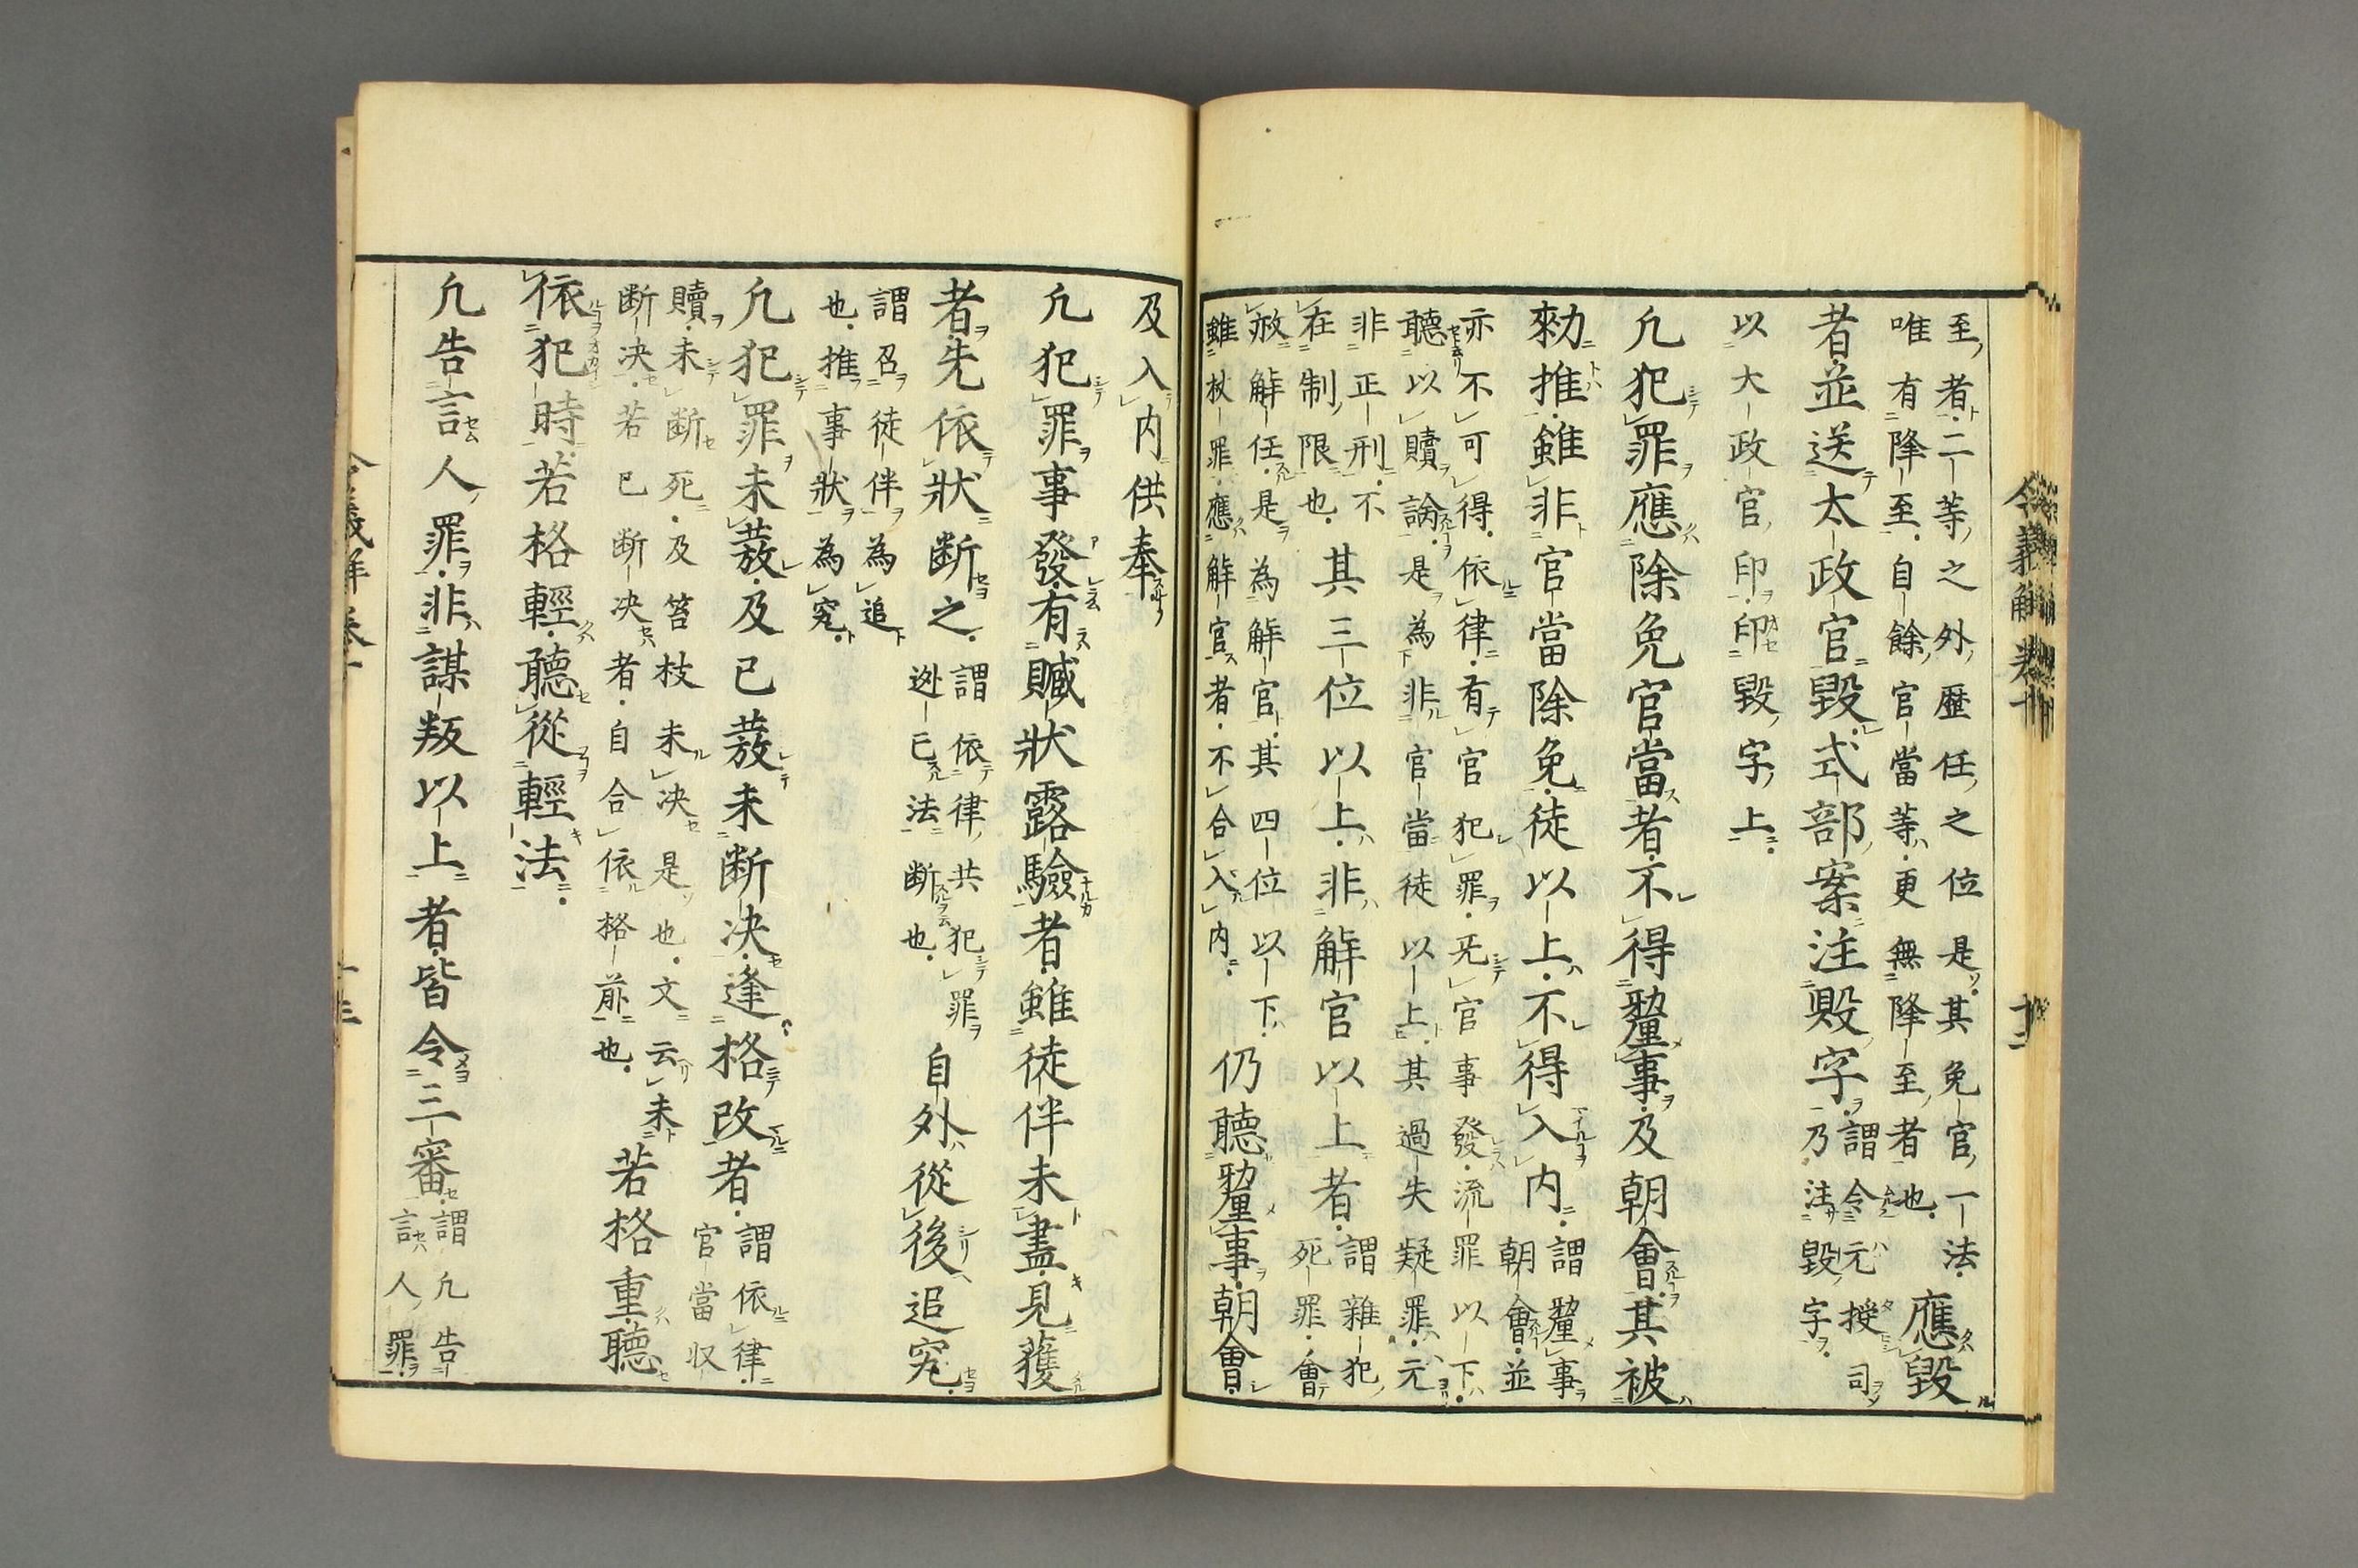 至者二等之外歴任之位是其免官一法
唯有降至自餘官當等更無降至者也
應毀
者並送太政官毀式部案注毀字
謂令元授司
乃注毀字
以大政官印印毀字上
凢犯罪應除免官當者不得釐事及朝會其被
勑推雖非官當除免徒以上不得入内
謂釐事
朝會並
亦不可得依律有官犯罪无官事發流罪以下
聽以贖論是為非官當徒以上其過失疑罪元
非正刑不
在制限也
其三位以上非解官以上者
謂雜犯
死罪會
赦解任是為解官其四位以下
雖杖罪應解官者不合入内
仍聽釐事朝會
及入内供奉
凢犯罪事發有贓狀露驗者雖徒伴未盡見獲
者先依狀断之
謂依律共犯罪
逃已法断也
自外從後追究
謂召徒伴為追
也推事狀為究
凢犯罪未發及已發未断决逢格改者
謂依律
官當収
贖未断死及笞杖未决是也文云未
断决若已断决者自合依格前也
若格重聽
依犯時若格輕聽從輕法
凢告言人罪非謀叛以上者皆令三審
謂凢告
言人罪
令義解卷十
十二